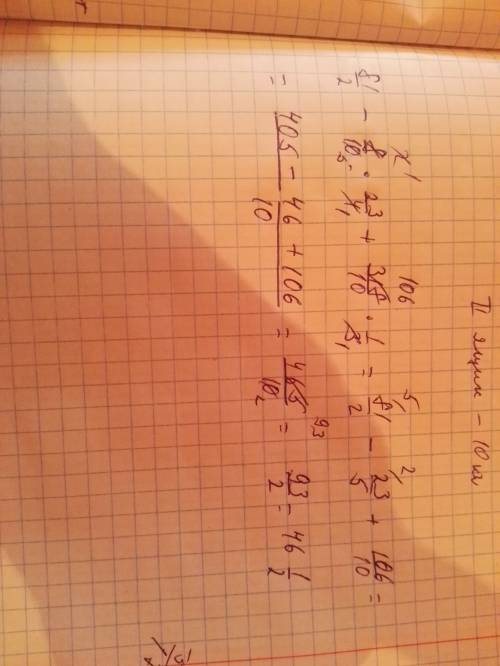 II ящик – 10 кг
81/2 – 8/10 · 23/4 + 318/10 · 1/3 = 81/2 – 23/5 + 106/10 =
= (405 – 46 + 106)/10 = 465/10 = 93/2 = 46 1/2